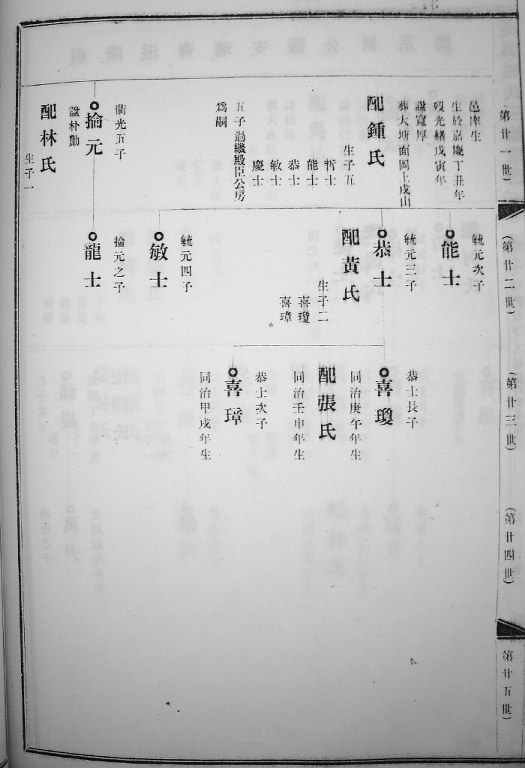 第廿一世
邑庠生
生於嘉慶丁丑年
歿光緒戊寅年
諡寬厚
葬大埔面岡上戌山
配鍾氏
生子五
哲士
能士
恭士
敏士
慶士
五子過繼殿臣公房
為嗣
衛光五子
掄元
諡朴勤
配林氏
生子一
(第廿二世)
毓元次子
能士
毓元三子
恭士
配黃氏
生子二
喜瓊
喜璋
毓元四子
敏士
掄元之子
龍士
(第廿三世)
恭士長子
喜瓊
同治庚午年生
配張氏
同治壬申年生
恭士次子
喜璋
同治甲戌年生
(第廿四世)
第廿五世)